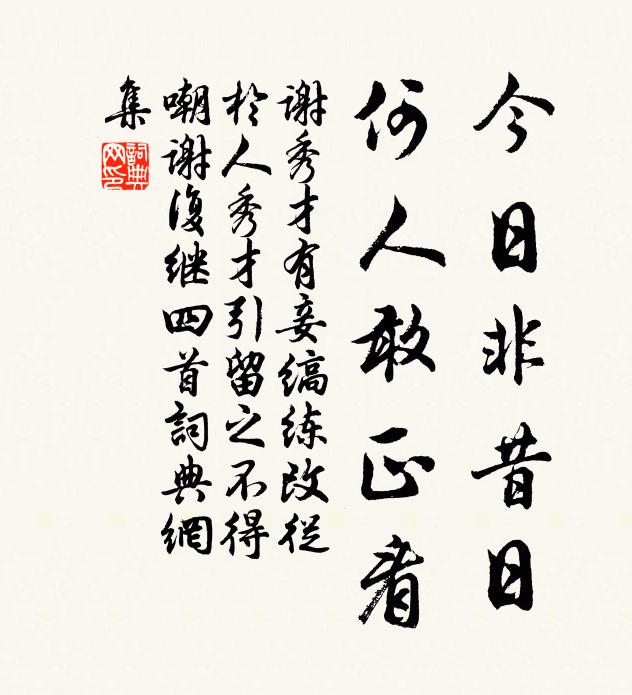 今日非昔日
何人敢正看
谢秀才有妾缟练改従
於人秀才引留之不得
嘲谢復继四首詞典網
集
詞典
网印